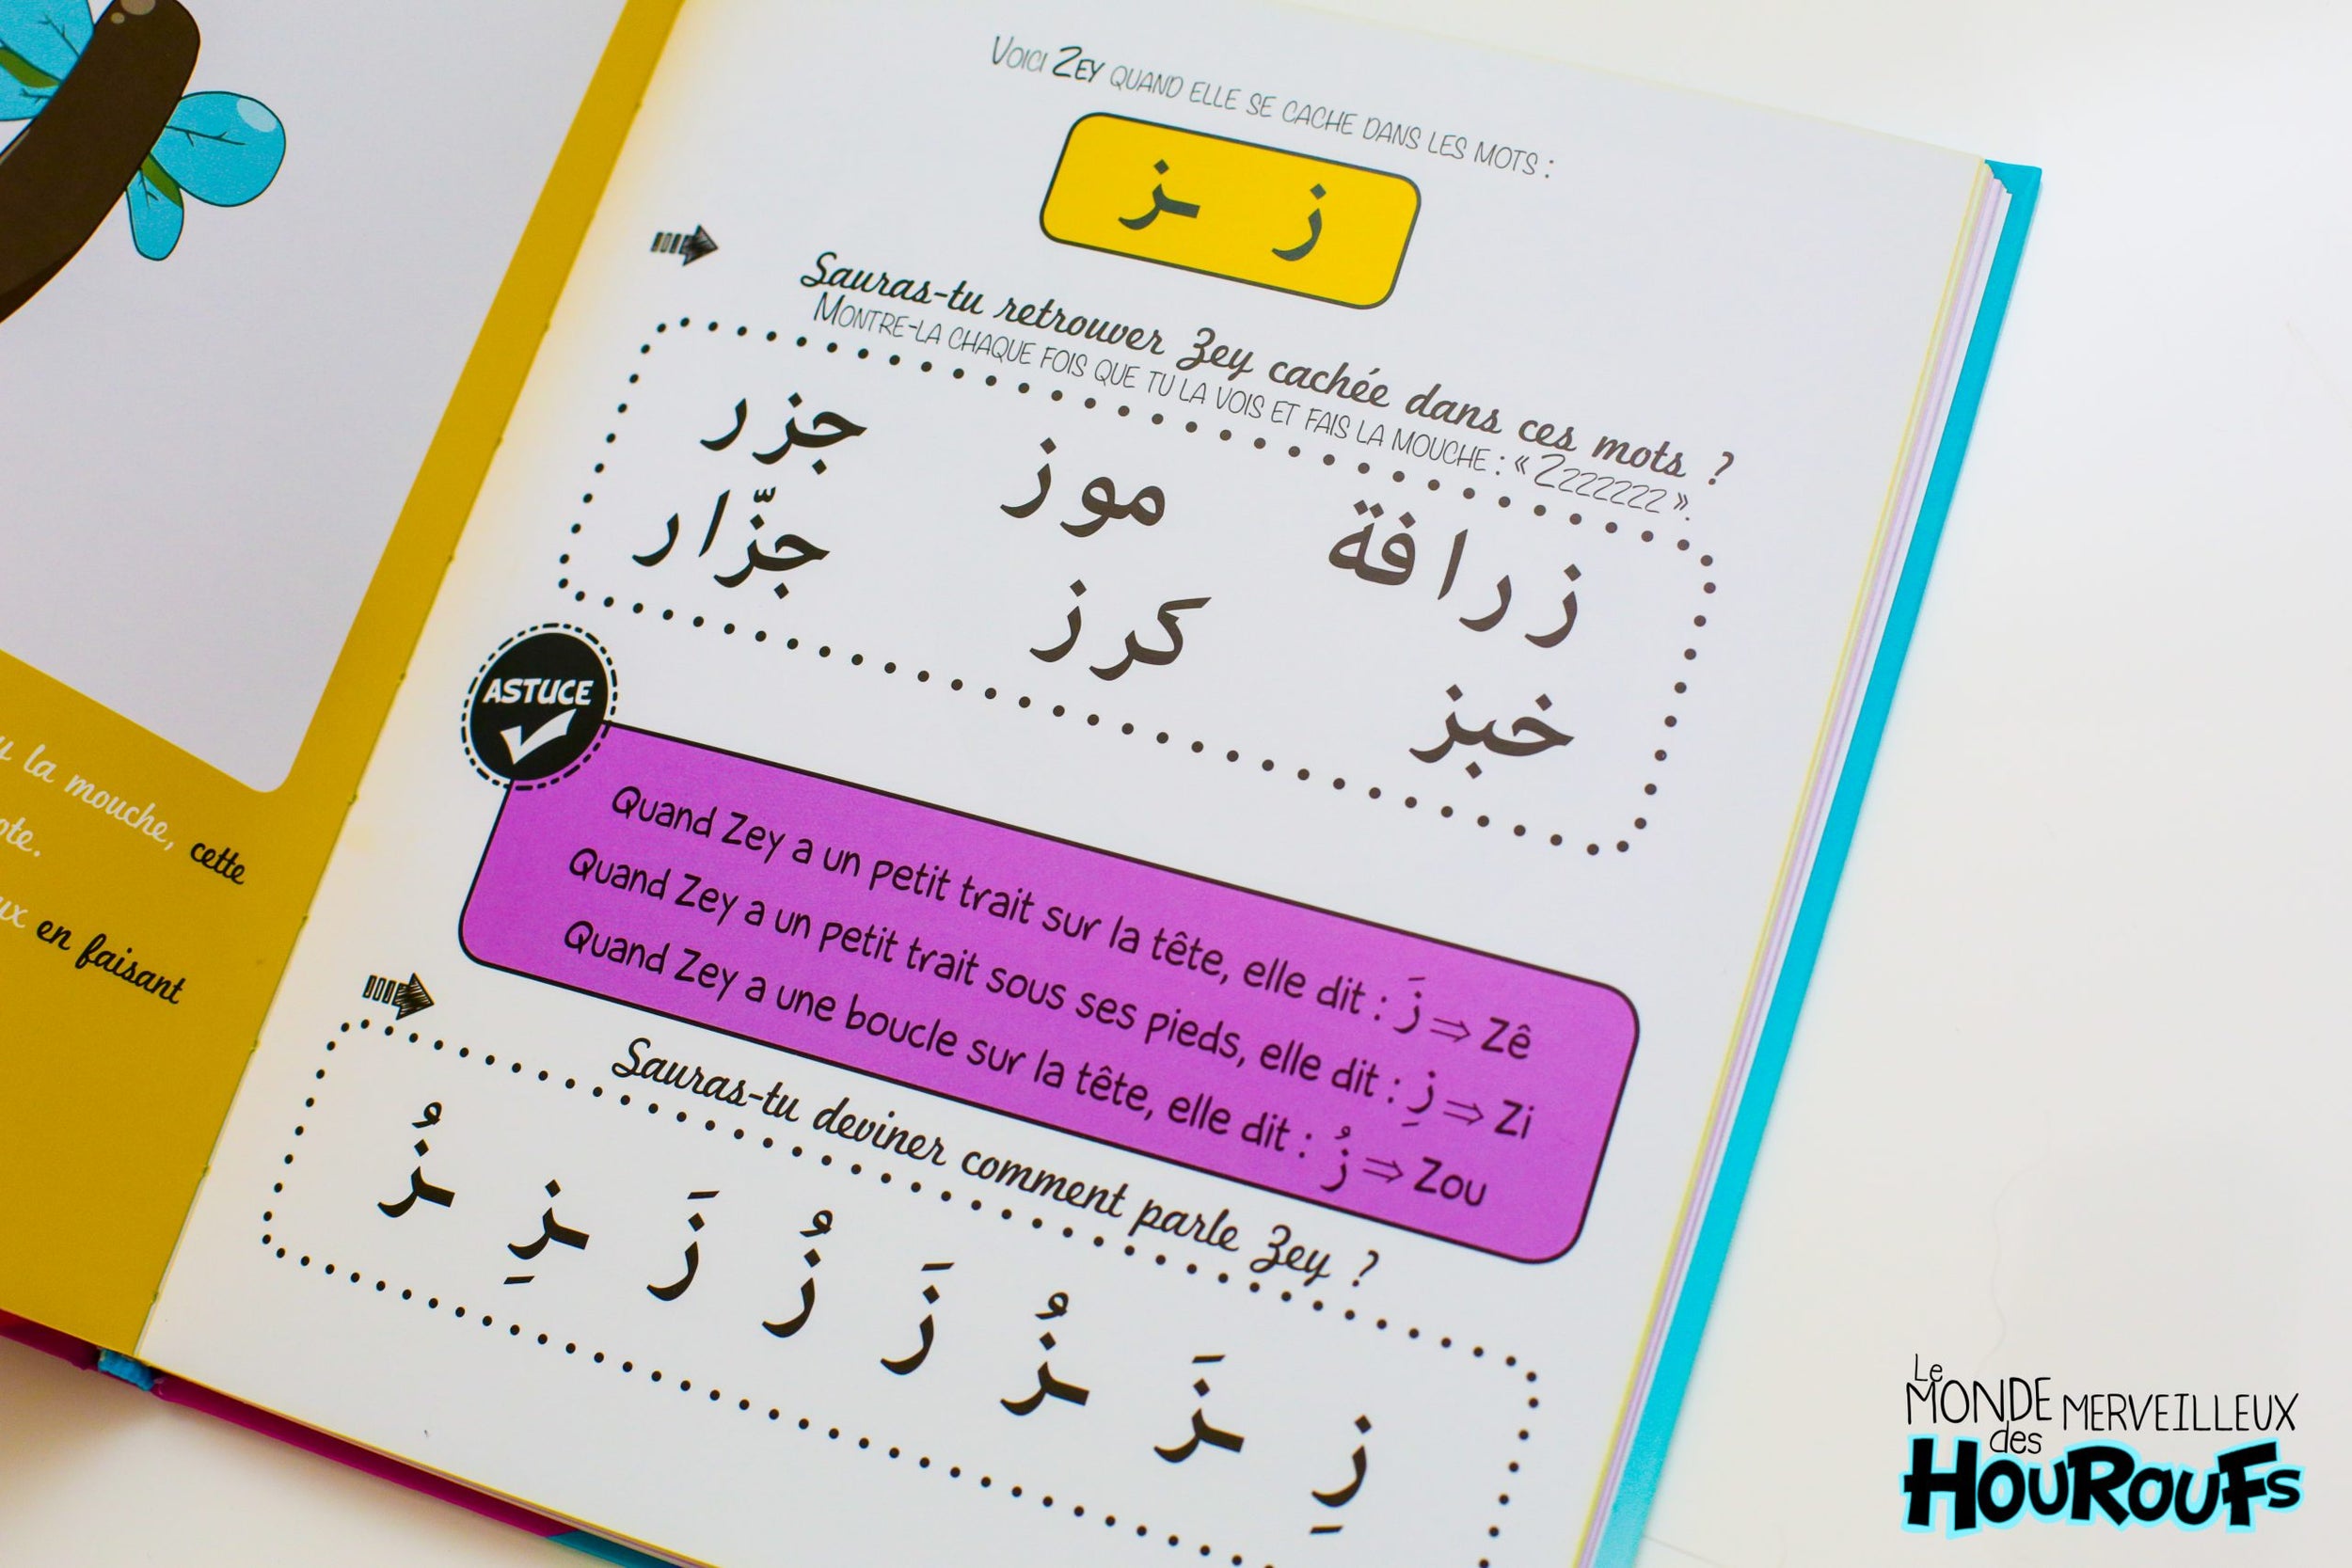 Voici Zey quand elle se cache dans les mots :
ز ـز
Sauras-tu retrouver Zey cachée dans ces mots ?
Montre-la chaque fois que tu la vois et fais la mouche : « Zzzzzzz ».
زرافة موز جزر
خبز كرز جزّار
ASTUCE
Quand Zey a un petit trait sur la tête, elle dit : زَ ⇒ Zê
Quand Zey a un petit trait sous ses pieds, elle dit : زِ ⇒ Zi
Quand Zey a une boucle sur la tête, elle dit : زُ ⇒ Zou
Sauras-tu deviner comment parle Zey ?
زِ ـزَ ـزُ زَ زُ زَ ـزِ ـزُ
la mouche, cette
en faisant
Le
MONDE MERVEILLEUX
des
HOUROUFS